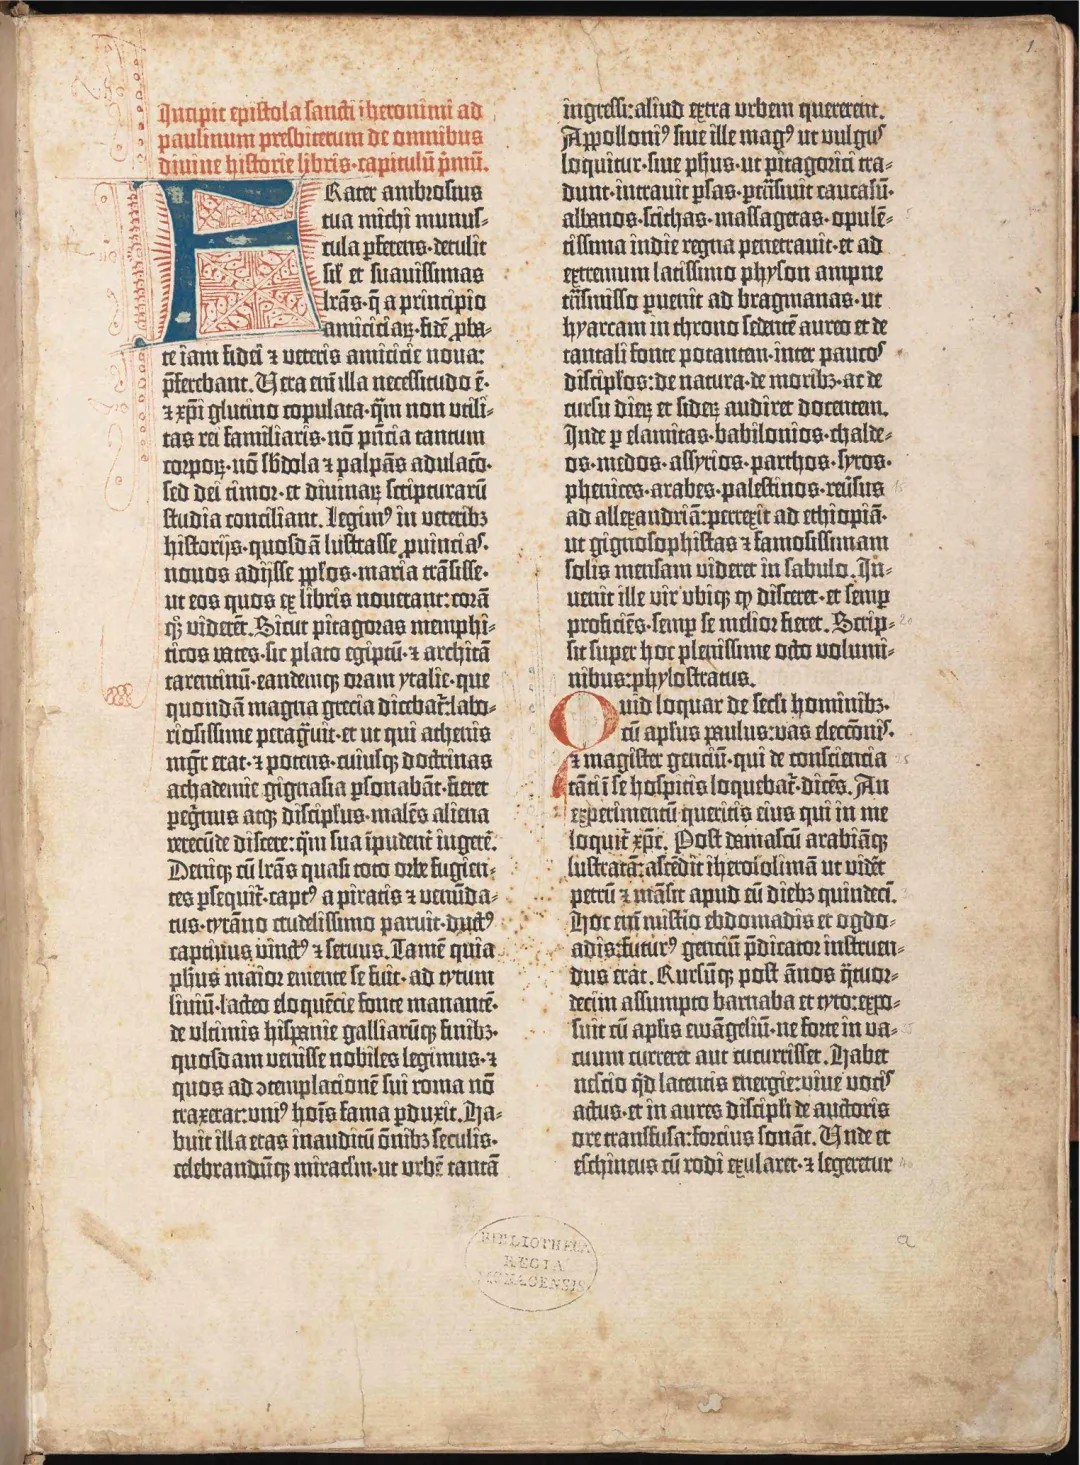 Incipit epistola sancti iheronimi ad
paulinum presbiterum de omnibus
divine historie libris·capitulū p̄mū.
FRater ambrosius
tua michi munus-
cula ꝑferens·detulit
sil̄ et suavissimas
lr̄as·q̄ a principio
amiciciaꝝ·fidē ꝓba-
te iam fidei ⁊ veteris amicicie noua:
p̄ferebant. Uera eni̅ illa necessitudo ē·
⁊ xp̄i glutino copulata·qm̄ non utili-
tas rei familiaris·nō pn̄cia tantum
corpoꝝ·nō sb̄dola ⁊ palpās adulacō·
sed dei timor·et divinaꝝ scripturarū
studia conciliant. Legimꝰ in veteribꝫ
historijs·quosdā lustrasse ꝓuincias·
nouos adijsse pp̄los·maria trāsisse·
ut eos quos ex libris nouerant:corā
qꝫ viderēt. Sicut pitagoras memphi-
ticos vates·sic plato egiptū·⁊ architā
tarentinū·eandemqꝫ oram ytalie·que
quondā magna grecia dicebat̄:labo-
riosissime peragͣuit·et ut qui athenis
mgr̄ erat·⁊ potens·cuiusqꝫ doctrinas
achademie gignasia ꝑsonabāt·fieret
peg̓nus atqꝫ discipl̓us·malēs aliena
verecūde discere:qm̄ sua īpudent̓ ingerē.
Deniqꝫ cū lr̄as quasi toto orbe fugien-
tes ꝑsequit̄·captꝰ a piratis ⁊ venūda-
tus·tyrāno crudelissimo paruit·ductꝰ
captiuus vinctꝰ ⁊ seruus. Tamē quia
ph̄us maior emente se fuit· ad tytum
liviū·lacteo eloquēcie fonte manantē·
de ultimis hispanie galliarūqꝫ finibꝫ·
quosdam venisse nobiles legimus·⁊
quos ad ꝯtemplacionē sui roma nō
traxerat:uniꝰ hoīs fama ꝑduxit. Ha-
buit illa etas inauditū ōnibꝫ seculis·
celebrandūqꝫ miracl̄m·ut urbē tantā
ingressi:aliud extra urbem quererent.
Appolloniꝰ siue ille magꝰ ut vulgus
loquitur·siue ph̄us·ut pitagorici tra-
dunt·intrauit ꝑsas·ꝑtrāsiuit caucasū·
albanos·scithas·massagetas·opulē-
tissima indie regna penetrauit·et ad
extremum latissimo physon ampne
trāsmisso ꝑuenit ad bragmanas·ut
hyarcam in throno sedentē aureo et de
tantali fonte potantem·inter paucos
discipl̄os:de natura·de moribꝫ·ac de
cursu dieꝝ et sideꝝ audiret docentem.
Inde ꝑ elamitas·babilonios·chalde-
os·medos·assyrios·parthos·syros·
phenices·arabes·palestinos·reūsus
ad allexandriā:perrexit ad ethiopiā·
ut gignosophistas ⁊ famosissimam
solis mensam videret in sabulo. In-
uenit ille vir ubiqꝫ qꝫ disceret·et semꝑ
proficiēs·semꝑ se melior fieret. Scrip-
sit super hoc plenissime octo volumi-
nibus:phylostratus.
Quid loquar de secl̄i hominibꝫ·
cū apl̄us paulus:vas elecc̄onis·
⁊ magister genciū·qui de consciencia
tāti ī se hospicis loquebat̄·dicēs. An
experimentū queritis eius qui in me
loquit̄ xp̄c. Post damascū arabiāqꝫ
lustratā:ascēdit iherosolimā ut vidēt
petrū ⁊ māsit apud eū diebꝫ quindecī.
Hoc eni̅ mistio ebdomadis et ogdo-
adis:futurꝰ genciū p̄dicator instruen-
dus erat. Rursūqꝫ post ānos q̄tuor-
decim assumpto barnaba et tyto:expo-
suit cū apl̄is ewāgeliū·ne forte in va-
cuum curreret aut cucurrisset. Habet
nescio qd̄ latentis energie:viue vocis
actus·et in aures discipl̄i de auctoris
ore transfusa:forcius sonāt. Unde et
eschineus cū rodi exularet·⁊ legeretur
a
BIBLIOTHECA
REGIA
MONACENSIS.